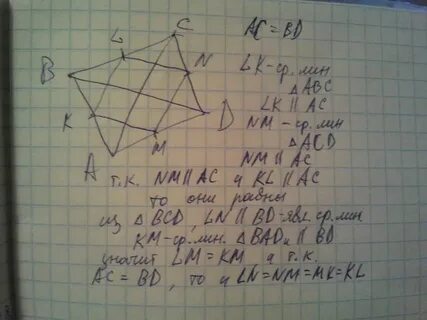 C
L
B
N
K
D
M
A
AC = BD
LK - ср. лин
△ABC
LK || AC
NM - ср. лин
△ACD
NM || AC
т.к. NM || AC и KL || AC
то они равны
из △BCD, LN || BD = явл. ср. лин
KM - ср. лин. △BAD и || BD
значит LM = KM а т.к.
AC = BD, то и LN = NM = MK = KL